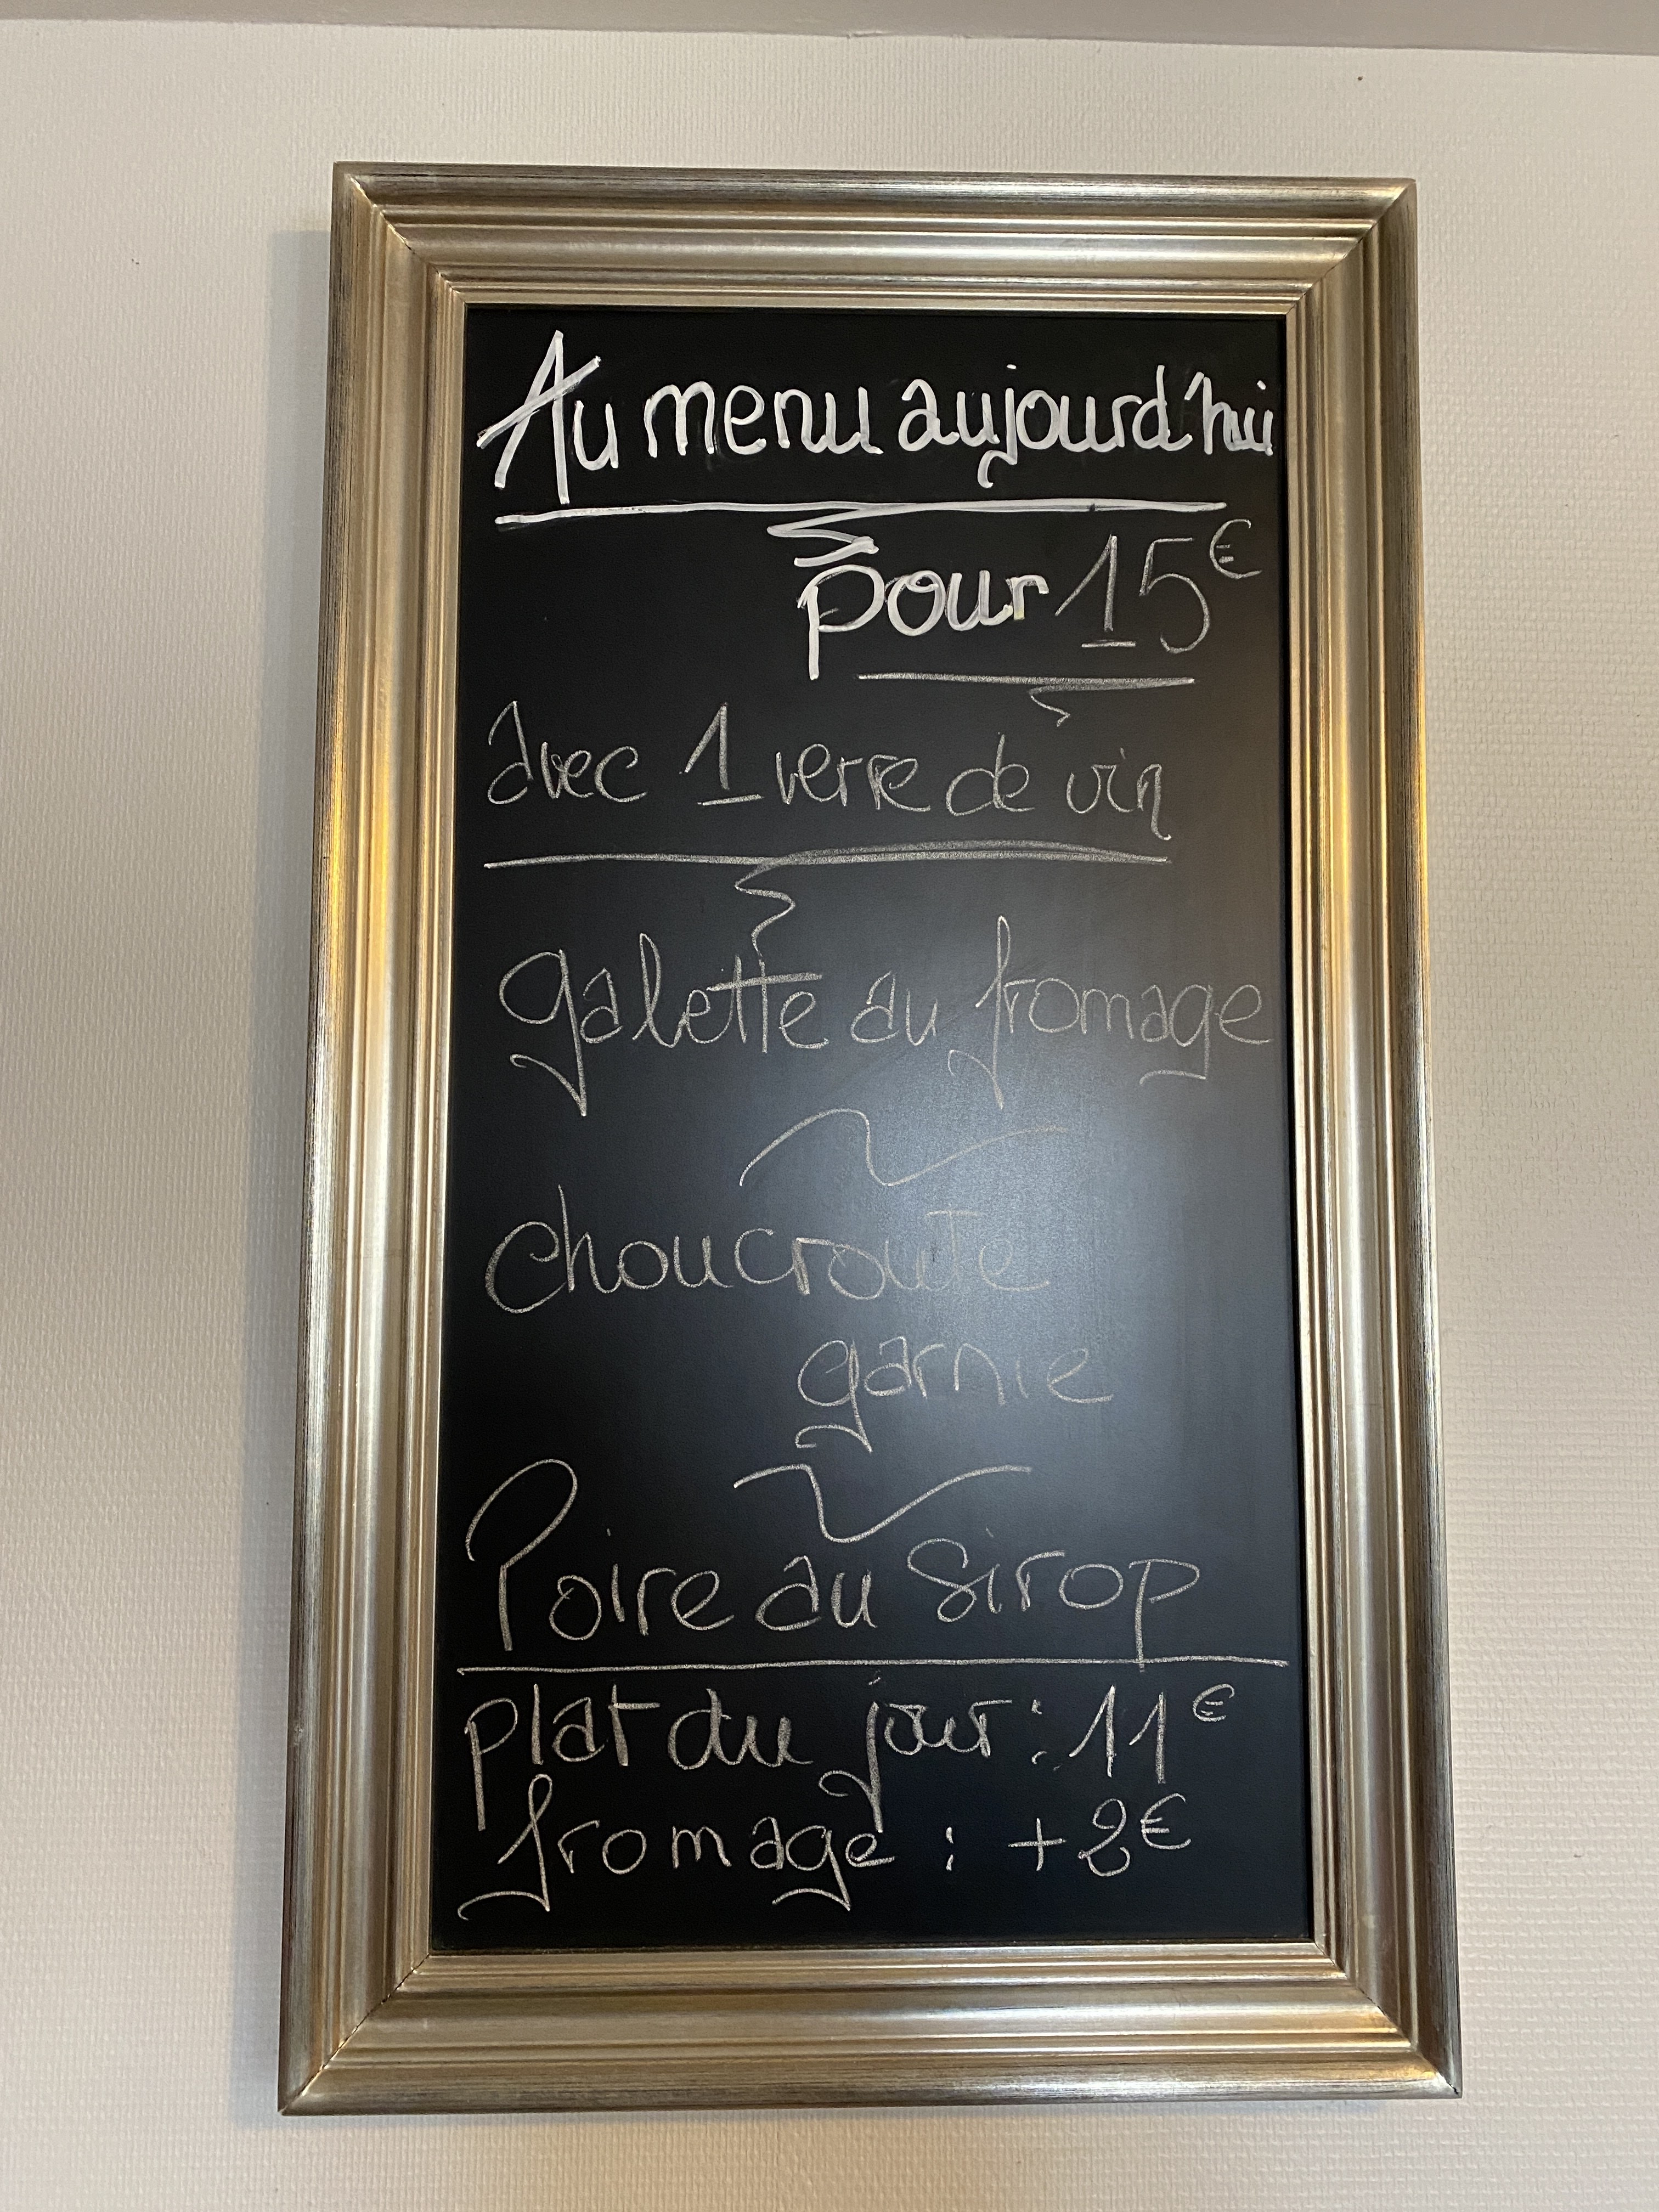 Au menu aujourd'hui
pour 15€
avec 1 verre de vin
galette au fromage
choucroute
garnie
Poire au Sirop
plat du jour : 11€
fromage : +2€